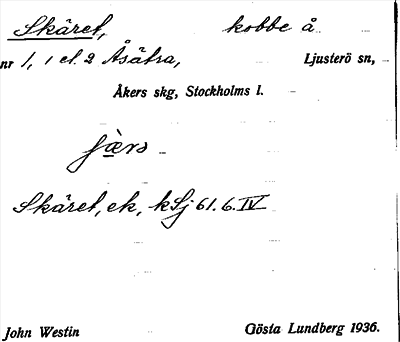 Skäret, kobbe å
nr 1, 1 el. 2 Åsätra, Ljusterö sn,
Åkers skg, Stockholms l.
Skäret, ek, kSj 61. 6. IV
John Westin Gösta Lundberg 1936.